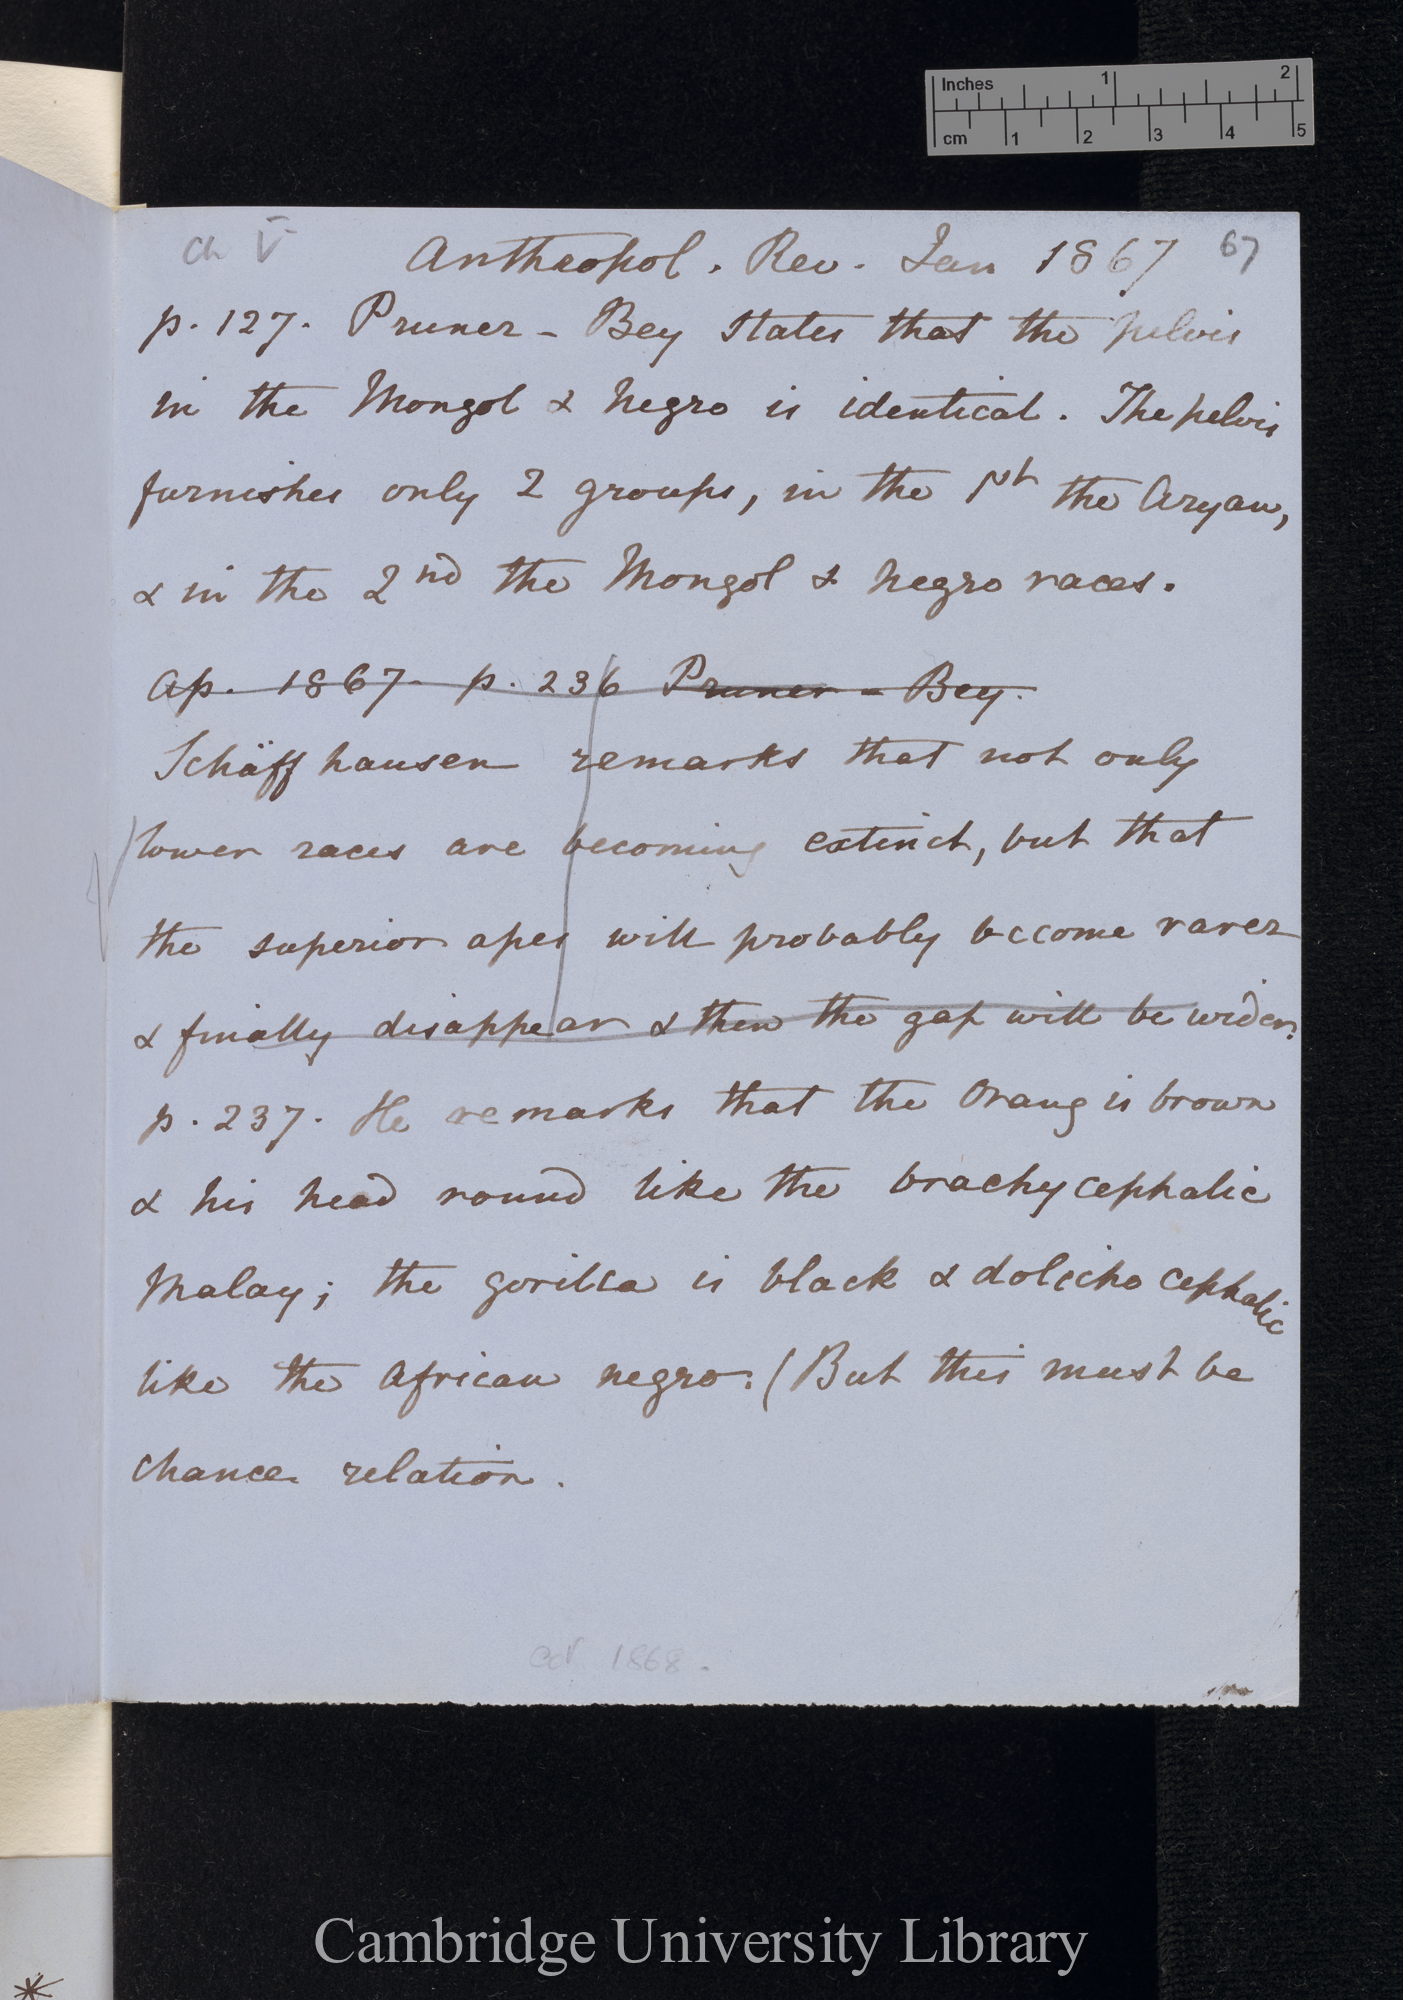 Inches 1 2
cm 1 2 3 4 5
Ch V
67
Anthropol. Rev. Jan 1867
p. 127. Pruner-Bey states that the pelvis
in the Mongol & Negro is identical. The pelvis
furnishes only 2 groups, in the 1st the Aryan,
& in the 2nd the Mongol & Negro races.
Ap. 1867. p. 236 Pruner-Bey.
Schäffhausen remarks that not only
lower races are becoming extinct, but that
the superior apes will probably become rarer
& finally disappear & then the gap will be wider.
p. 237. He remarks that the Orang is brown
& his head round like the brachycephalic
Malay; the gorilla is black & dolichocephalic
like the African negro. (But this must be
chance relation.
Oct 1868.
Cambridge University Library